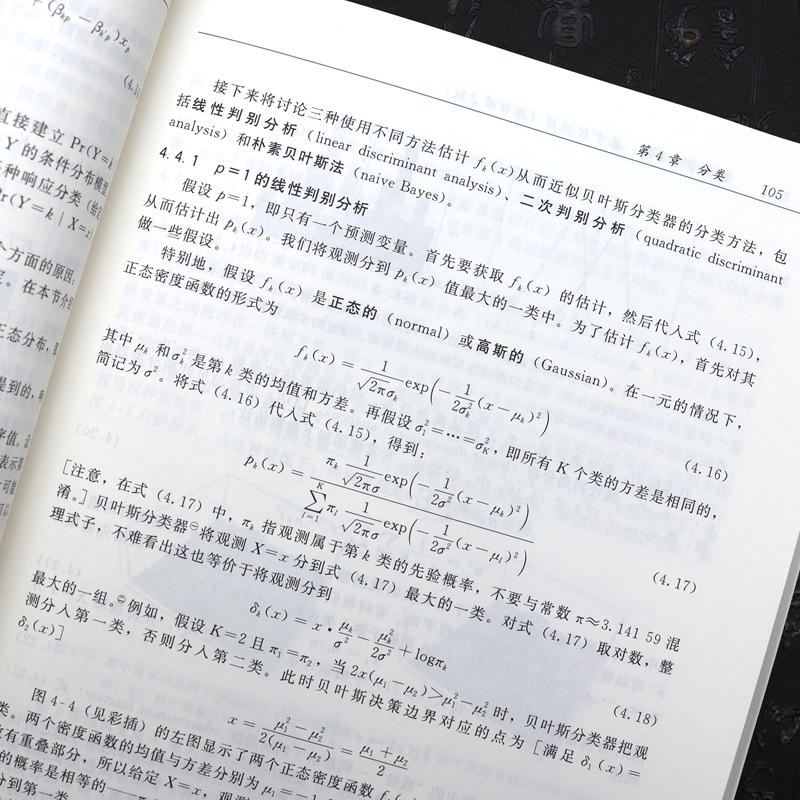 +(β_kp − β_k'p)x_p
直接建立 Pr(Y=k
Y 的条件分布模型
种响应分类（给
Pr(Y=k | X=x)
个方面的原因：
在本节介绍
正态分布，
提到的，
第4章 分类 105
接下来将讨论三种使用不同方法估计 f_k(x)从而近似贝叶斯分类器的分类方法，包
括线性判别分析（linear discriminant analysis）、二次判别分析（quadratic discriminant
analysis）和朴素贝叶斯法（naive Bayes）。
4.4.1 p=1的线性判别分析
假设 p=1，即只有一个预测变量。首先要获取 f_k(x) 的估计，然后代入式（4.15），
从而估计出 p_k(x)。我们将观测分到 p_k(x) 值最大的一类中。为了估计 f_k(x)，首先对其
做一些假设。
特别地，假设 f_k(x) 是正态的（normal）或高斯的（Gaussian）。在一元的情况下，
正态密度函数的形式为
f_k(x) = 1/(√2πσ_k) exp(−1/(2σ_k²)(x−μ_k)²) (4.16)
其中 μ_k 和 σ_k² 是第 k 类的均值和方差。再假设 σ_1²=…=σ_K²，即所有 K 个类的方差是相同的，
简记为 σ²。将式（4.16）代入式（4.15），得到：
p_k(x) = π_k 1/(√2πσ) exp(−1/(2σ²)(x−μ_k)²) / ∑_{l=1}^{K} π_l 1/(√2πσ) exp(−1/(2σ²)(x−μ_l)²) (4.17)
［注意，在式（4.17）中，π_k 指观测属于第 k 类的先验概率，不要与常数 π≈3.141 59 混
淆。］贝叶斯分类器㊀将观测 X=x 分到式（4.17）最大的一类。对式（4.17）取对数，整
理式子，不难看出这也等价于将观测分到
δ_k(x) = x·μ_k/σ² − μ_k²/(2σ²) + logπ_k (4.18)
最大的一组。㊁例如，假设 K=2 且 π_1=π_2，当 2x(μ_1−μ_2)>μ_1²−μ_2² 时，贝叶斯分类器把观
测分入第一类，否则分入第二类。此时贝叶斯决策边界对应的点为［满足 δ_1(x)=
δ_2(x)］
x = (μ_1²−μ_2²)/(2(μ_1−μ_2)) = (μ_1+μ_2)/2
图 4-4（见彩插）的左图显示了两个正态密度函数
类。两个密度函数的均值与方差分别为 μ_1=−1.
有重叠部分，所以给定 X=x，观
的概率是相等的
分到第一类